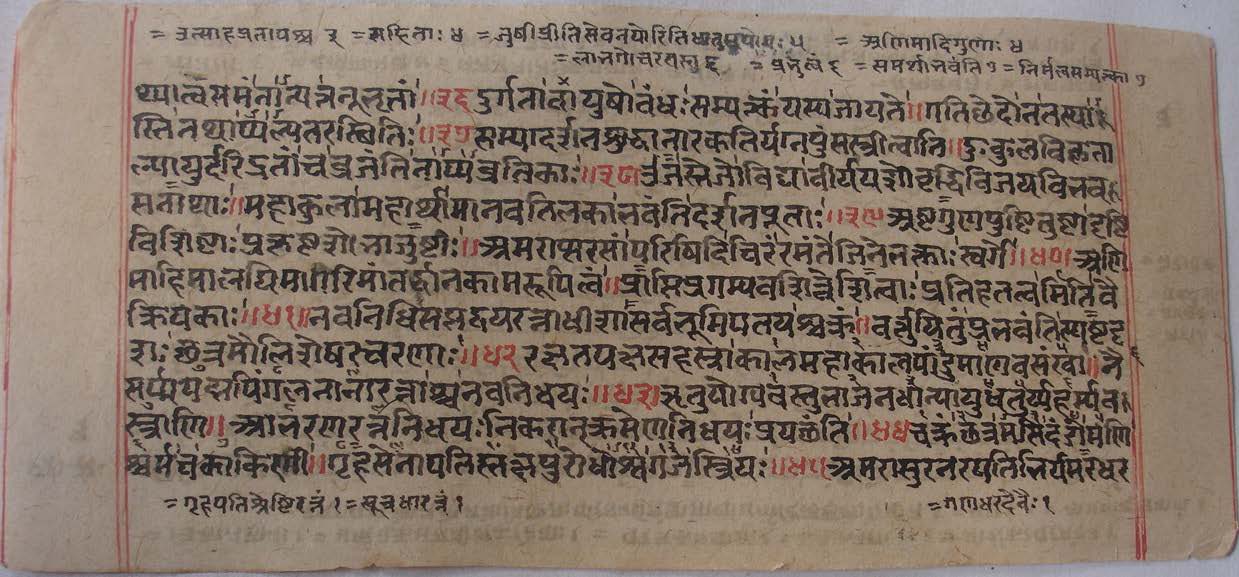 =उत्साहप्रतापश्च ३ =सहिताः ४ =जुषीप्रीतिसेवनयोरितिधातुप्रयोगः ५ = अणिमादिगुणाः ४
=प्रभुत्वं ६ =समर्थाभवंति ७ =निर्मलसम्यक्त्का ७
थ्यात्वसमंनान्यत्तनूभृतां॥३६ दुर्गतावायुषोबंधःसम्यक्त्कंयस्यजायते॥गतिछेदोनतस्या
स्तितथाप्यल्पतरस्थितिः॥३७ सम्यग्दर्शनशुद्धानारकतिर्यग्नपुंसस्त्रीत्वानि॥दुःकुलविकृता
ल्पायुर्दरिद्रतांचव्रजंतिनाप्यव्रतिकाः॥३८ ओजस्तेजोविद्यावीर्ययशोवृद्धिविजयविभव
सनाथाः॥महाकुलामहार्थामानवतिलकाभवंतिदर्शनपूताः॥३९ अष्टगुणपुष्टितुष्टादृष्टि
विशिष्टाःप्रकृष्टशोभाजुष्टाः॥अमराप्सरसांपरिषदिचिरंरमंतेजिनेंद्रभक्ताःस्वर्गे॥४० अणि
मामहिमालघिमागरिमांतर्द्धानकामरूपित्वं॥प्राप्तिप्रागम्यवशित्वेशित्वाःप्रतिहतत्वमितिवै
क्रियकाः॥४१ नवनिधिसप्तद्वयरत्नाधीशाःसर्वभूमिपतयश्चक्रं॥वर्त्तयितुंप्रभवंतिस्पष्टदृ
शाःक्षत्रमौलिशेषरचरणाः॥४२ रक्षितयक्षसहस्राकालमहाकालपांडुमाणवसंखाः॥नै
सर्प्पपद्मपिंगलनानारत्नाश्चनवनिधयः॥४३ ऋतुयोग्यवस्तुभाजनधान्यायुधतुर्य्यहर्म्यव
स्त्राणि॥आभरणरत्ननिधयःनिकरानुक्रमेणनिधयःप्रयछंति॥४४ चक्रंछत्रमसिदंडोमणि
श्चर्मचकाकिणी॥गृहसेनापतिस्तक्षपुरोधोश्वगजस्त्रियः॥४५ अमरासुरनरपतिभिर्यमधर
=गृहपतिश्रेष्टिरत्नं १ =सूत्रधाररत्नं १ =गणधरदेवैः १